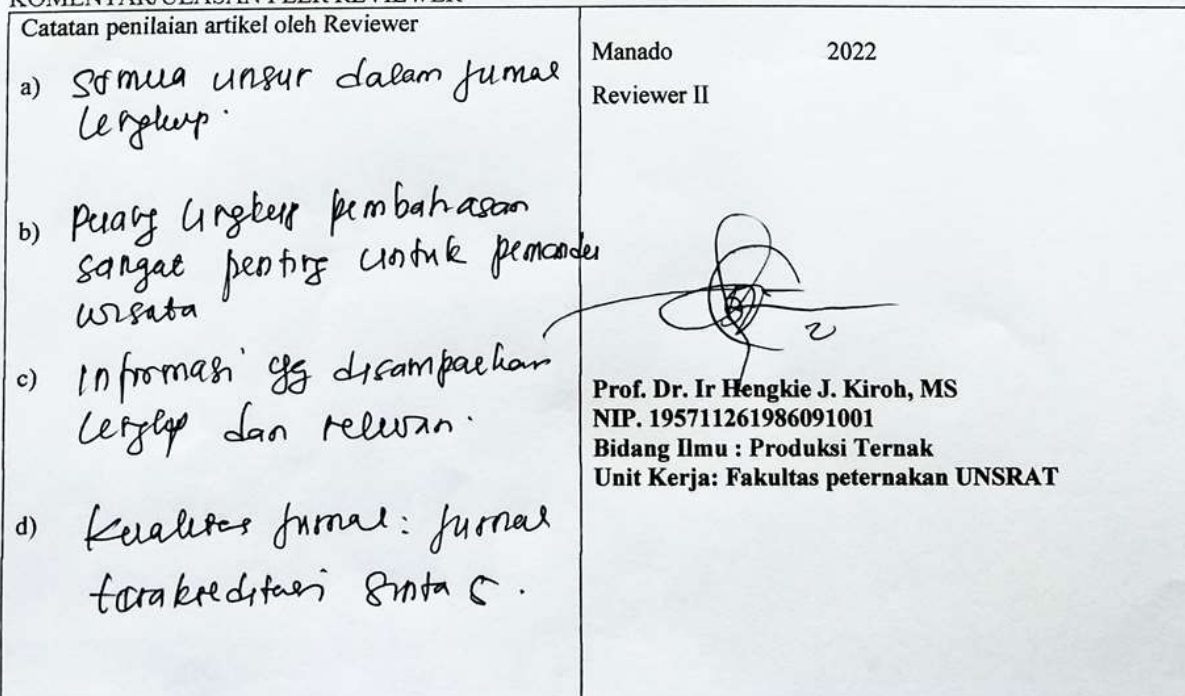 KOMENTAR/ULASAN PEER REVIEWER
Catatan penilaian artikel oleh Reviewer
a) Semua unsur dalam jurnal
lengkap.
b) Ruang lingkup pembahasan
sangat penting untuk pemandu
wisata
c) Informasi yg disampaikan
lengkap dan relevan.
d) Kualitas jurnal: jurnal
terakreditasi Sinta 5.
Manado 2022
Reviewer II
Prof. Dr. Ir Hengkie J. Kiroh, MS
NIP. 195711261986091001
Bidang Ilmu : Produksi Ternak
Unit Kerja: Fakultas peternakan UNSRAT